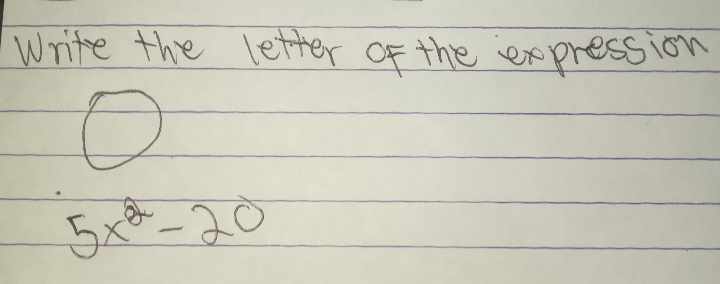 Write the letter of the expression
5x² - 20